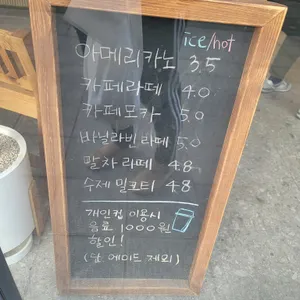 ice/hot
아메리카노 3.5
카페라떼 4.0
카페모카 5.0
바닐라빈라떼 5.0
말차라떼 4.8
수제 밀크티 4.8
개인컵 이용시
음료 1000원
할인!
(단, 에이드 제외)